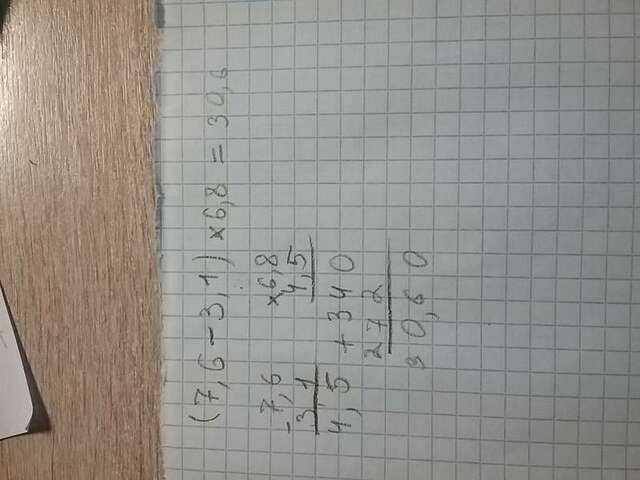 (7,6 - 3,1) × 6,8 = 30,6
- 7,6
3,1
4,5
× 6,8
4,5
+ 340
272
30,60